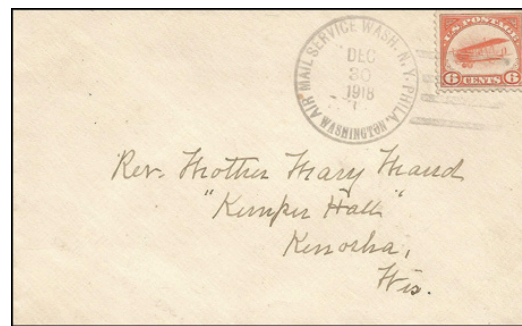 AIR MAIL SERVICE WASH. N.Y. PHILA.
DEC
30
1918
WASHINGTON.
U.S. POSTAGE
6 CENTS 6
Rev. Mother Mary Maud
"Kemper Hall"
Kenosha,
Wis.